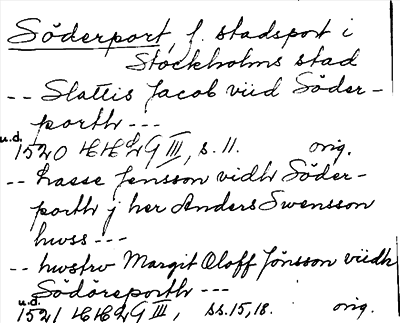 Söderport, f. stadsport i
Stockholms stad
-- Slattis Jacob viid Söder-
porth ---
u.d.
1520 HH2G III, s. 11. orig.
-- Lasse Jensson vidh Söder-
porth j her Anders Swensson
hwss ---
-- hwstrv Margit Oloff Jönsson viidh
Södöreporth ---
u.d.
1521 HH2G III, ss. 15, 18. orig.